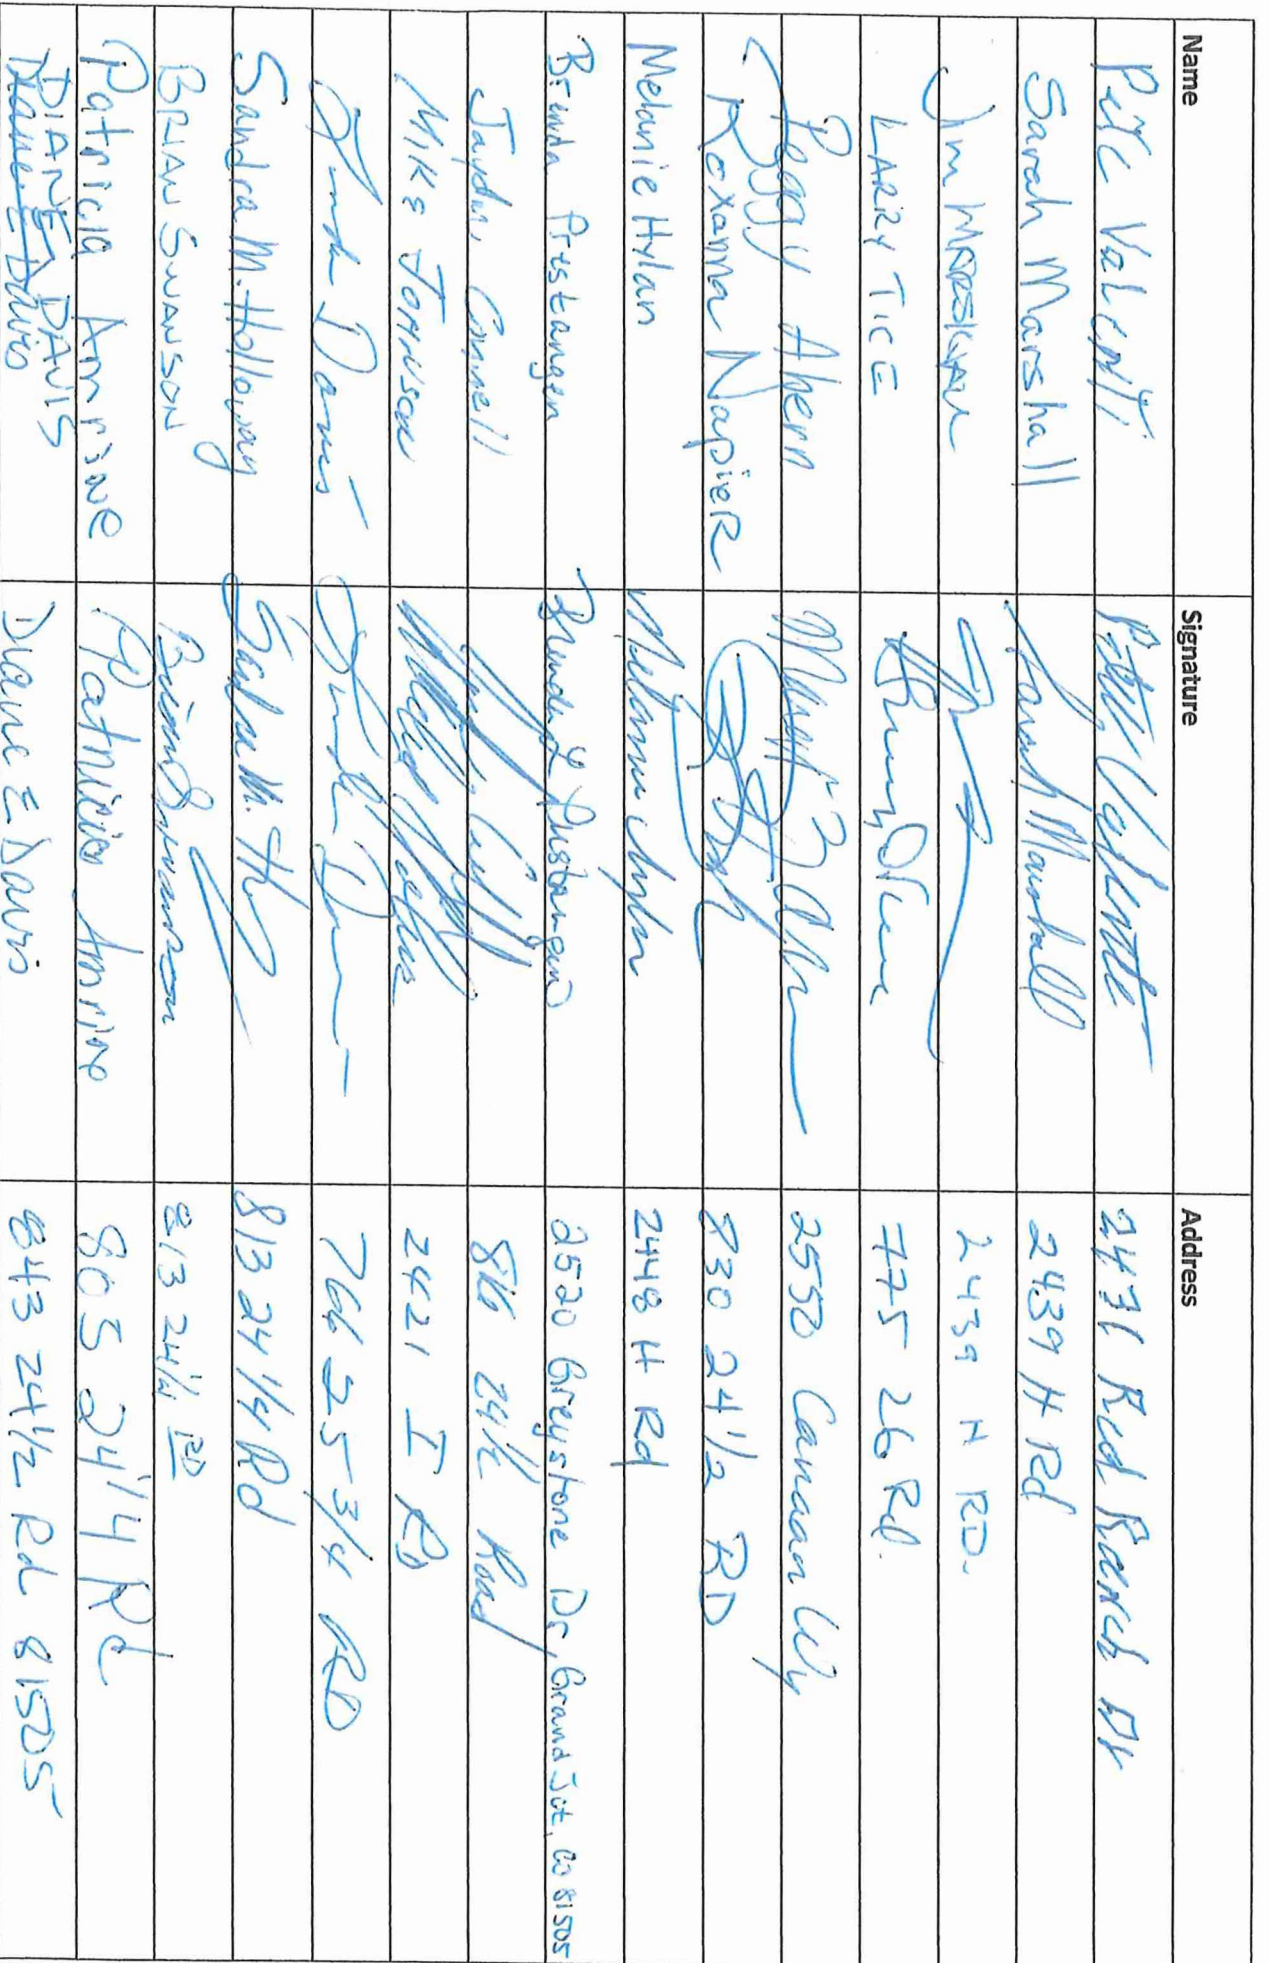 Name Signature Address
Pete Valenti 2471 Red Ranch Dr
Sarah Marshall Sarah Marshall 2439 H Rd
Jim 2439 H RD.
LARRY TICE 775 26 Rd.
Peggy Ahern 2550 Canaan Wy
Roxanna Napier 830 24 1/2 RD
Melanie Hylan Melanie Hylan 2448 H Rd
Brenda Prestangen Brenda Prestangen 2520 Greystone Dr, Grand Jct, CO 81505
Jayden Connell Road
MIKE JOHNSON 2421 I RD
Davis 766 25 3/4 RD
Sandra M. Holloway Sandra M. 813 24 1/4 Rd
BRIAN SWANSON Brian Swanson 813 24 1/4 RD
Patricia Amrine Patricia Amrine 805 24 1/4 Rd
DIANE DAVIS Diane E Davis 843 24 1/2 Rd 81505
Diane Davis